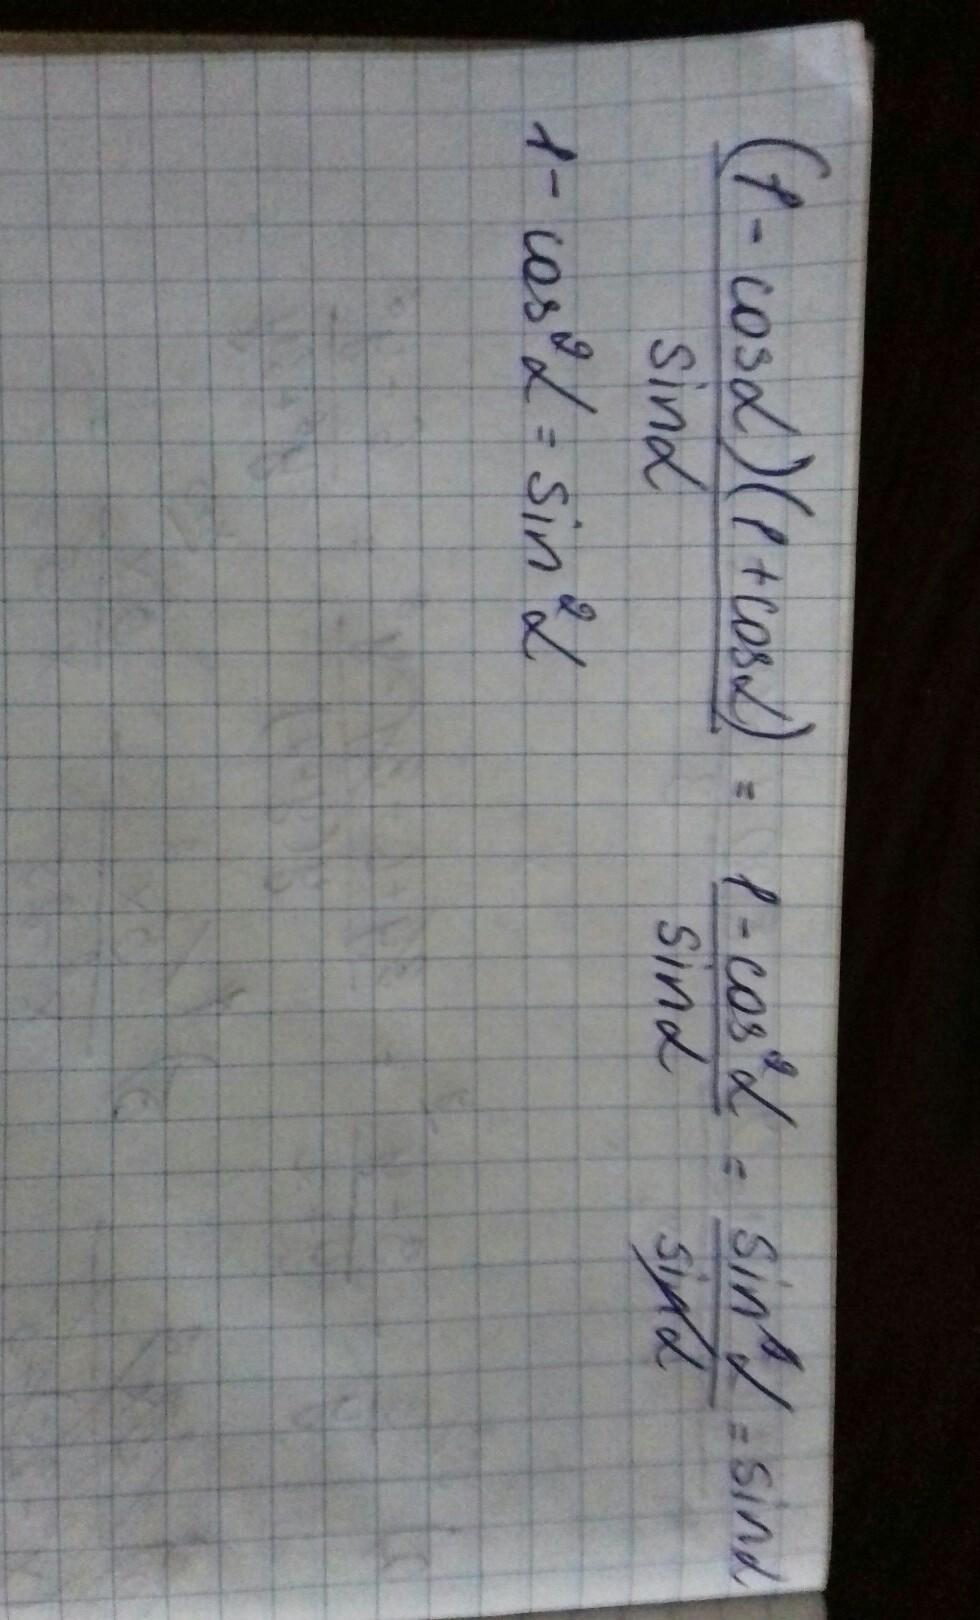 (1 - cosα)(1 + cosα) / sinα = 1 - cos²α / sinα = sin²α / sinα = sinα
1 - cos²α = sin²α